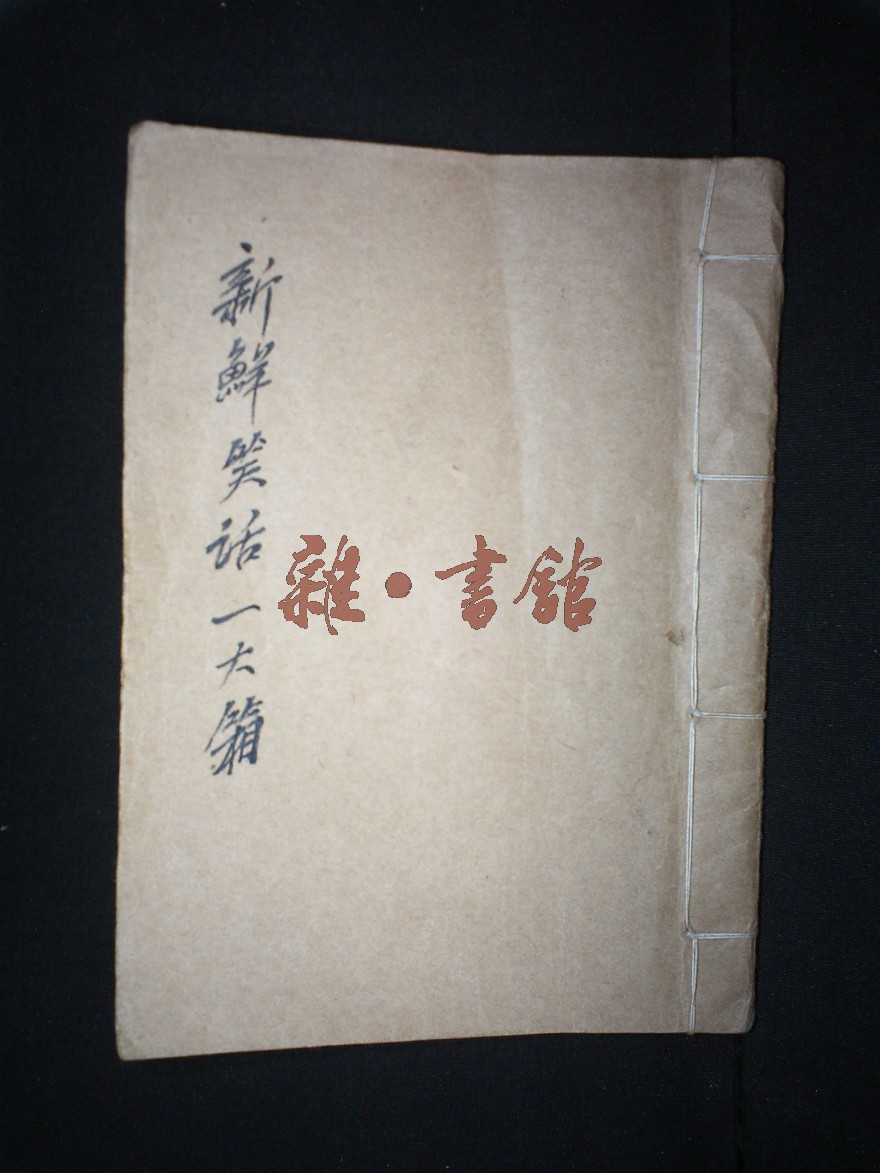 新鮮笑话一大箱
雜·書舘